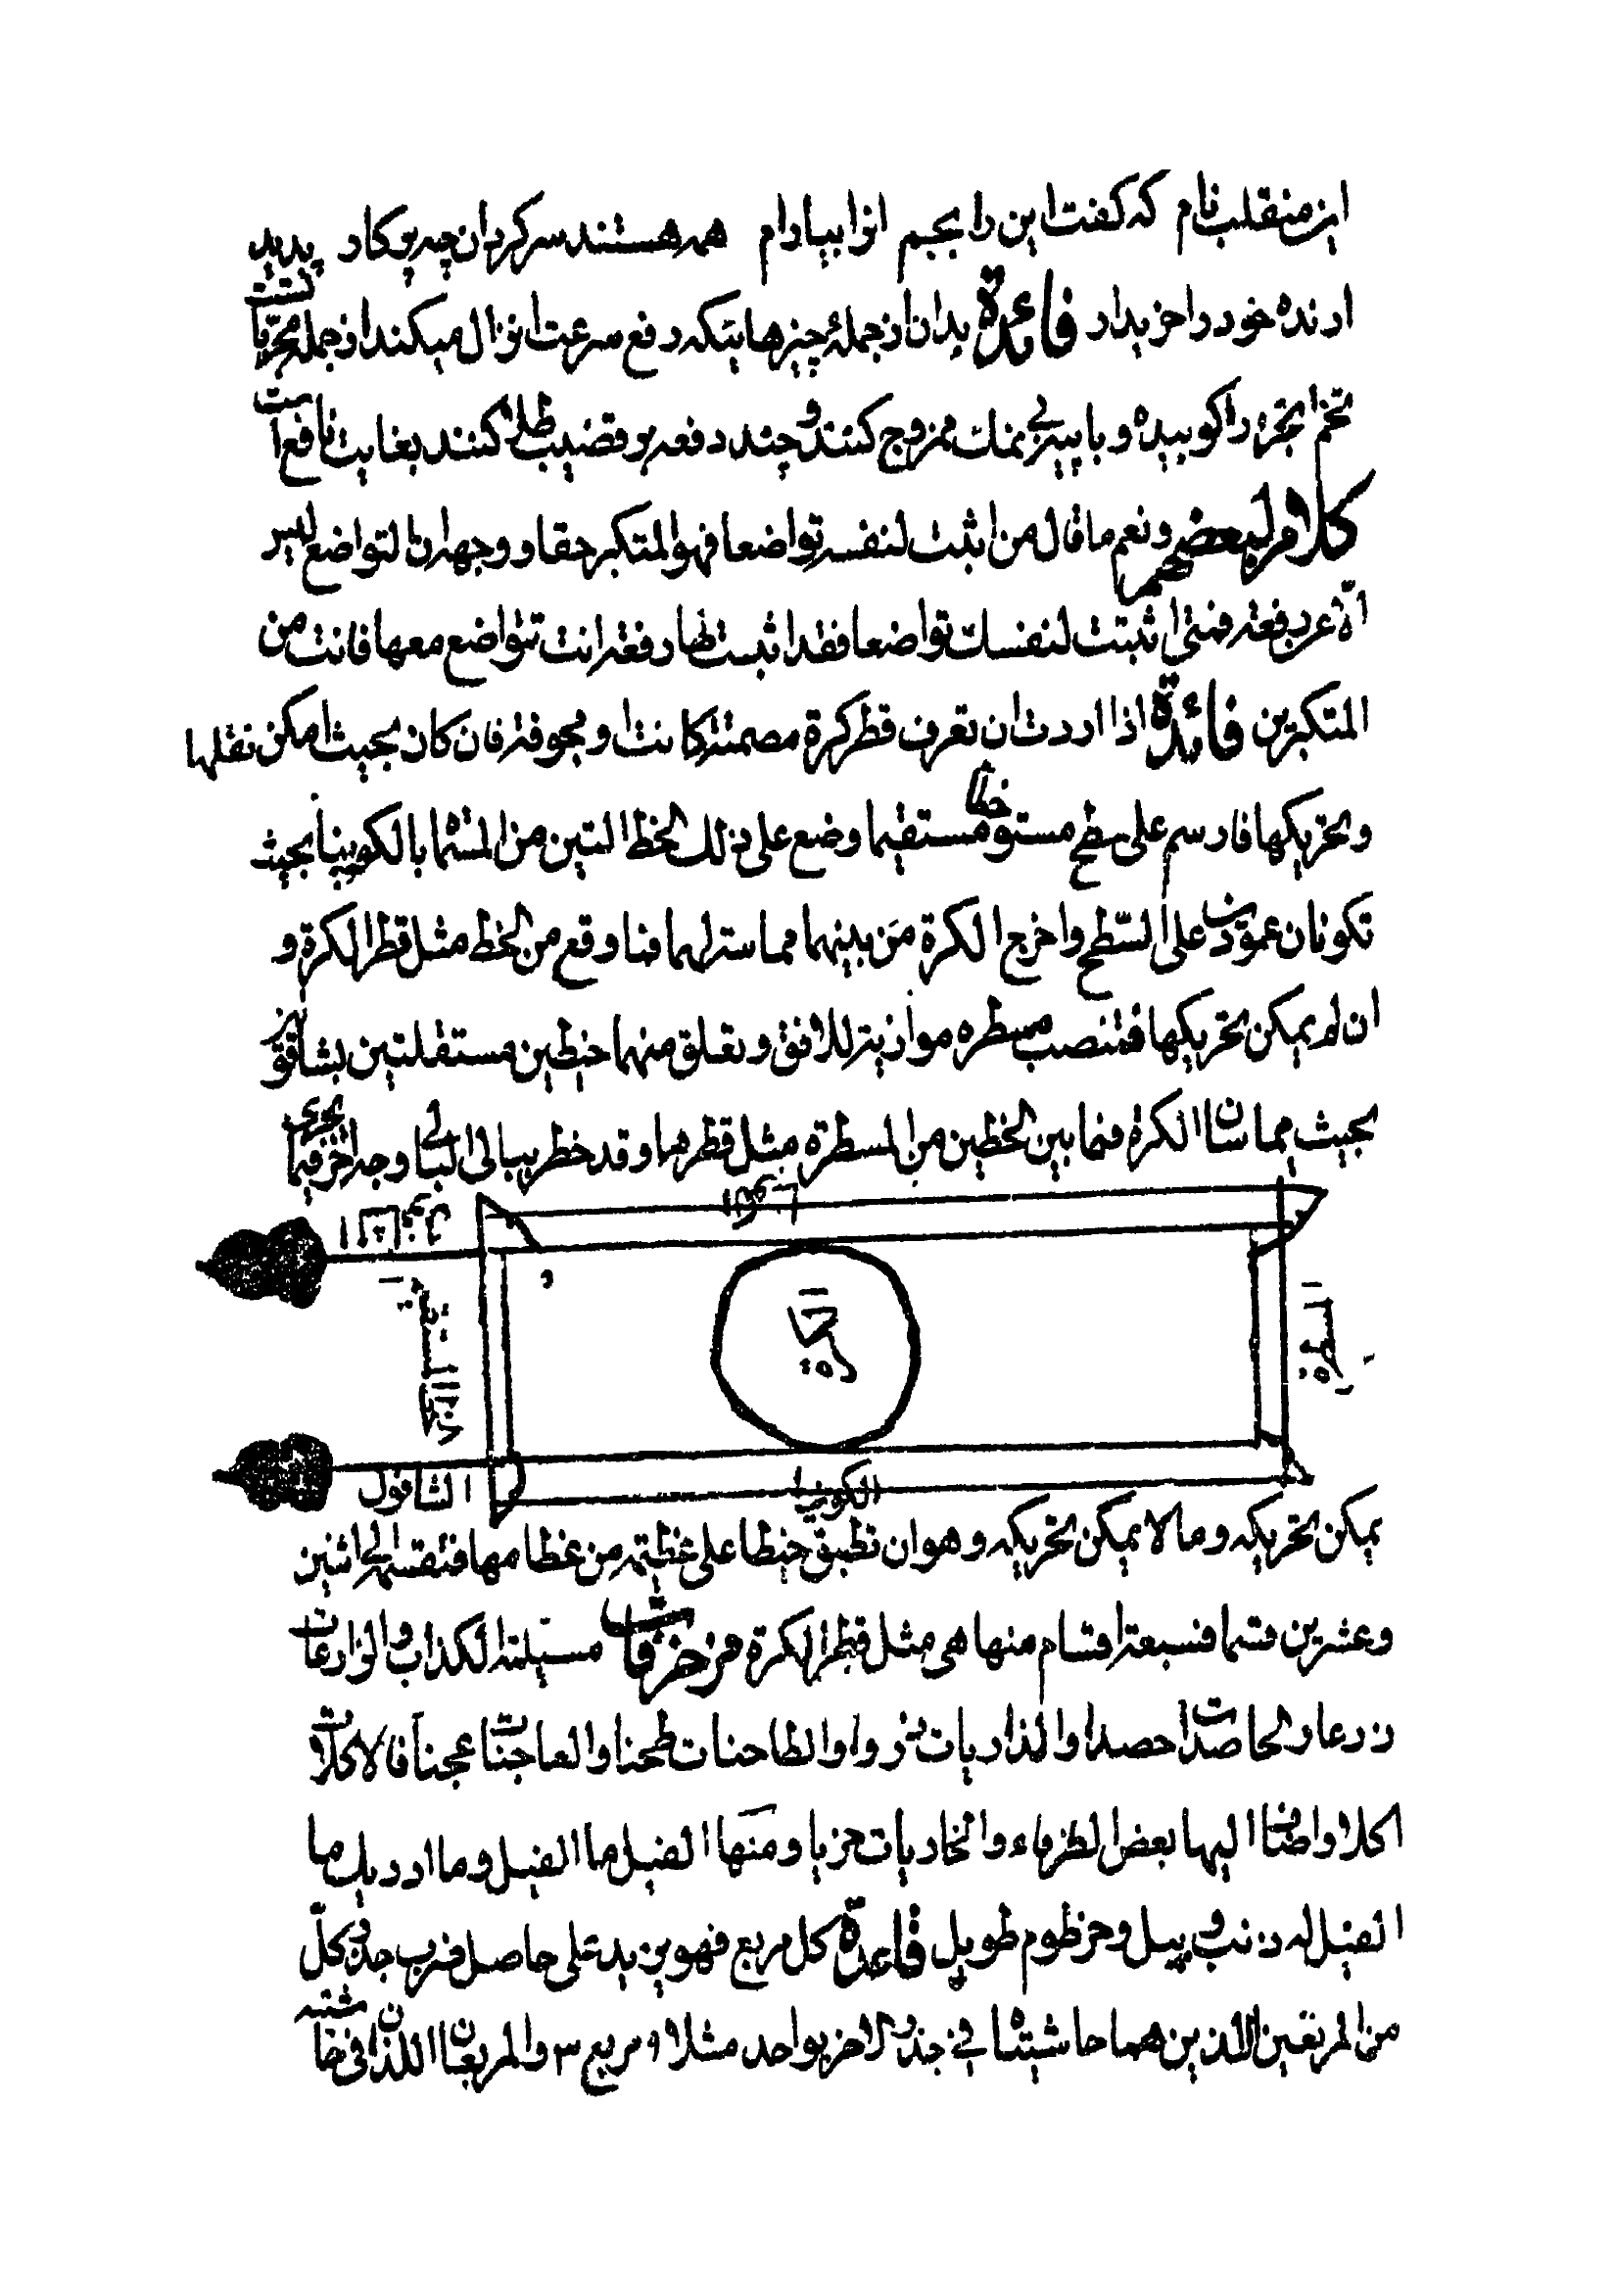 این منقلب نام که کفت این را بجم انرا بیارام همه هستند سرکردان چه پرکار پدید
ارنده خود را خریدار فائدة بدان از جملهٔ چیزهاییکه دفع سرعت انزال میکند از جمله مجرّبات
تخم انجره را کوبیده و با پیه بی نمك ممزوج کنند و چند دفعه بر قضیب طلا کنند بغایت نافع است
کلام لبعضهم و نعم ما قال من اثبت لنفسه تواضعا فهو المتکبر حقا و وجهه ان التواضع لیس
الّا عن رفعة فمتی اثبتت لنفسك تواضعا فقد اثبت لها رفعة انت تتواضع معها فانت من
المتکبرین فائدة اذا اردت ان تعرف قطر کرة مصمتة کانت او مجوفة فان کان بحیث امکن نقلها
و تحریکها فارسم علی سطح مستو خطا مستقیما وضع علی ذلك الخط التین من المسماة بالکوینا بحیث
تکونان عمودین علی السّطح و اخرج الکرة من بینهما مماسة لهما فما وقع من الخط مثل قطر الکرة و
ان لم یمکن تحریکها فتنصب مسطرة موازیة للافق و تعلق منهما خیطین مستقلتین بشاقولین
بحیث یماسان الکرة فما بین الخطین من المسطرة مثل قطرها و قد خطر ببالی البالی وجه اخر فیما یجری
الکوینا
الشاقول
المسطرة
الکرة
الشاقول
الکوینا
یمکن تحریکه و ما لا یمکن تحریکه و هو ان تطبق خیطا علی عظیمة من عظامها فتقسمه الی اثنین
و عشرین قسما فسبعة اقسام منها هی مثل قطر الکرة مزخرفات مسیلمة الکذاب و الزارعات
زرعا و الحاصدات حصدا و الذاریات ذروا و الطاحنات طحنا و العاجنات عجنا فالاکلات
اکلا و اضاف الیها بعض الظرفاء و الخاریات خریا و منها الفیل ما الفیل و ما ادریك ما
الفیل له ذنب وبیل و خرطوم طویل قاعدة کل مربع فهو یزید علی حاصل ضرب جذر کلّ
من المربعین الذین هما حاشیتاه فی جذر الاخر بواحد مثلا ۹ مربع ۳ و المربعان اللذان فی حاشیته